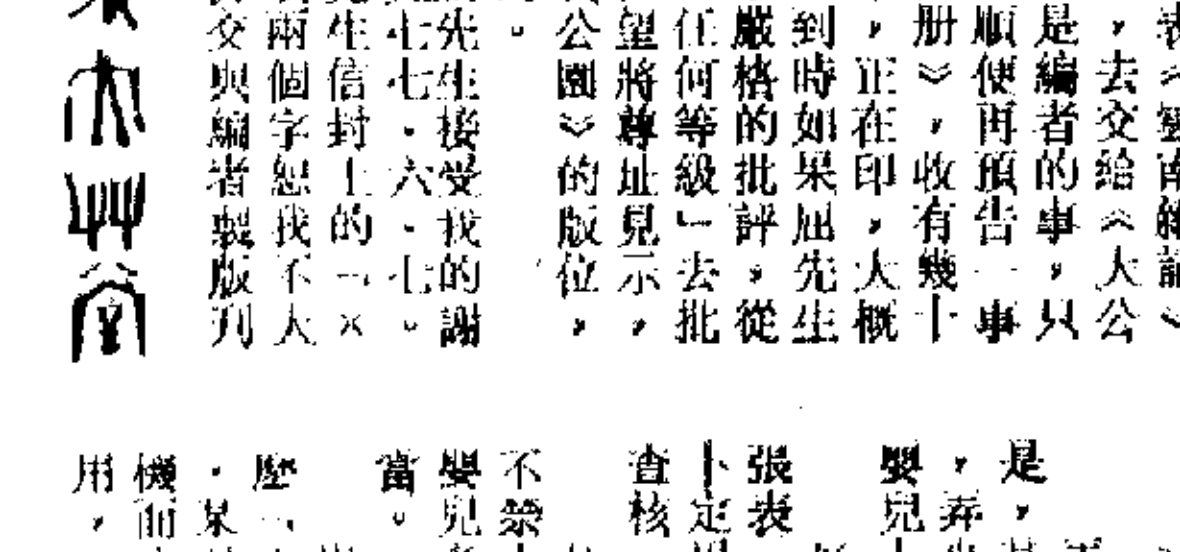 去交給《大公
是編者的事,只
順便再預告一事
册》,收有幾十
,正在印,大概
到時如果屈先生
嚴格的批評,從
任何等級」去批
望將尊址見示,
公園》的版位,
。
先生接受我的謝
七七・六・七。
生信封上的「×
兩個字恕我不大
交與編者製版刊
木艸堂
是,
,弄
嬰兒
張表
卜定
查核
不禁
嬰兒
當。
壓「
・某
機而
用,